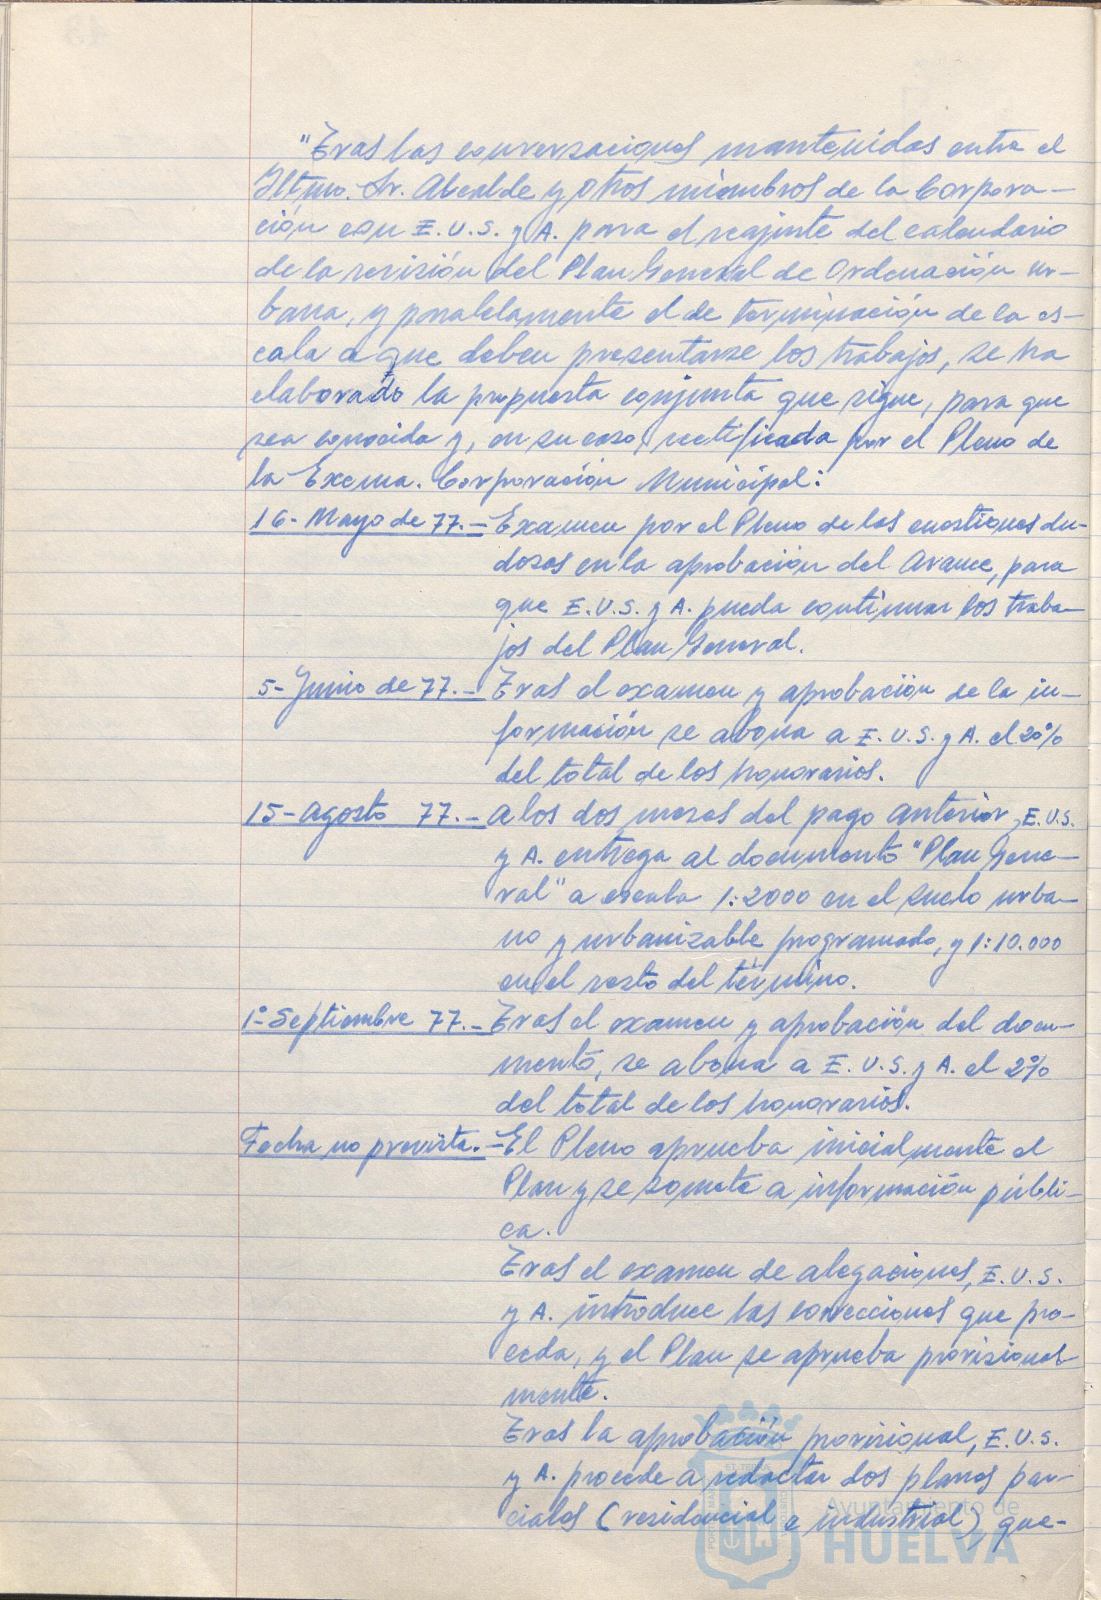 "Tras las conversaciones mantenidas entre el
Iltmo. Sr. Alcalde y otros miembros de la Corpora-
ción con E.U.S. y A. para el reajuste del calendario
de la revisión del Plan General de Ordenación ur-
bana, y paralelamente el determinación de la es-
cala a que deben presentarse los trabajos, se ha
elaborado la propuesta conjunta que sigue, para que
sea conocida y, en su caso, rectificada por el Pleno de
la Excma. Corporación Municipal:
16- Mayo de 77.- Examen por el Pleno de las cuestiones du-
dosas en la aprobación del Avance, para
que E.U.S. y A. pueda continuar los traba-
jos del Plan General.
5- Junio de 77.- Tras el examen y aprobación de la in-
formación se abona a E.U.S. y A. el 20%
del total de los honorarios.
15- Agosto 77.- A los dos meses del pago anterior, E.U.S.
y A. entrega al documento "Plan Gene-
ral" a escala 1:2000 en el suelo urba-
no y urbanizable programado, y 1:10.000
en el resto del término.
1º- Septiembre 77.- Tras el examen y aprobación del docu-
mento, se abona a E.U.S. y A. el 2%
del total de los honorarios.
Fecha no prevista.- El Pleno aprueba inicialmente el
Plan y se somete a información públi-
ca.
Tras el examen de alegaciones, E.U.S.
y A. introduce las correcciones que pro-
ceda, y el Plan se aprueba provisional-
mente.
Tras la aprobación provisional, E.U.S.
y A. procede a redactar dos planes par-
ciales (residencial e industrial) que-
Ayuntamiento de
HUELVA